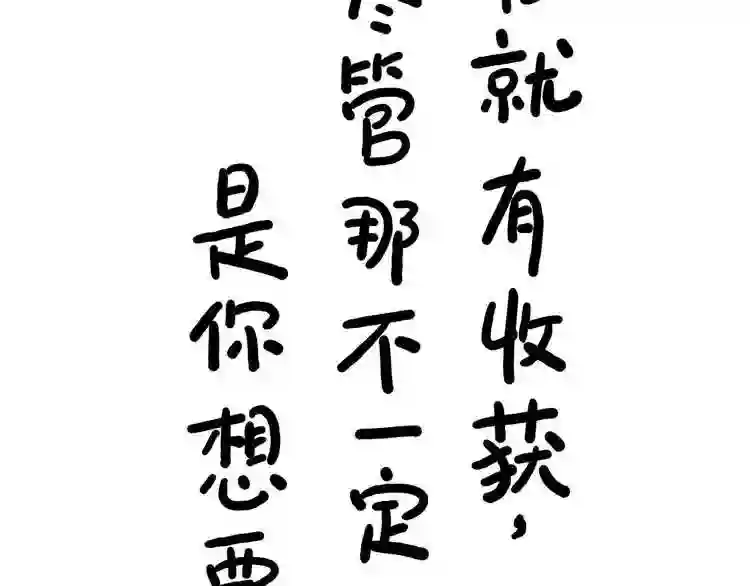 就有收获，
尽管那不一定
是你想要